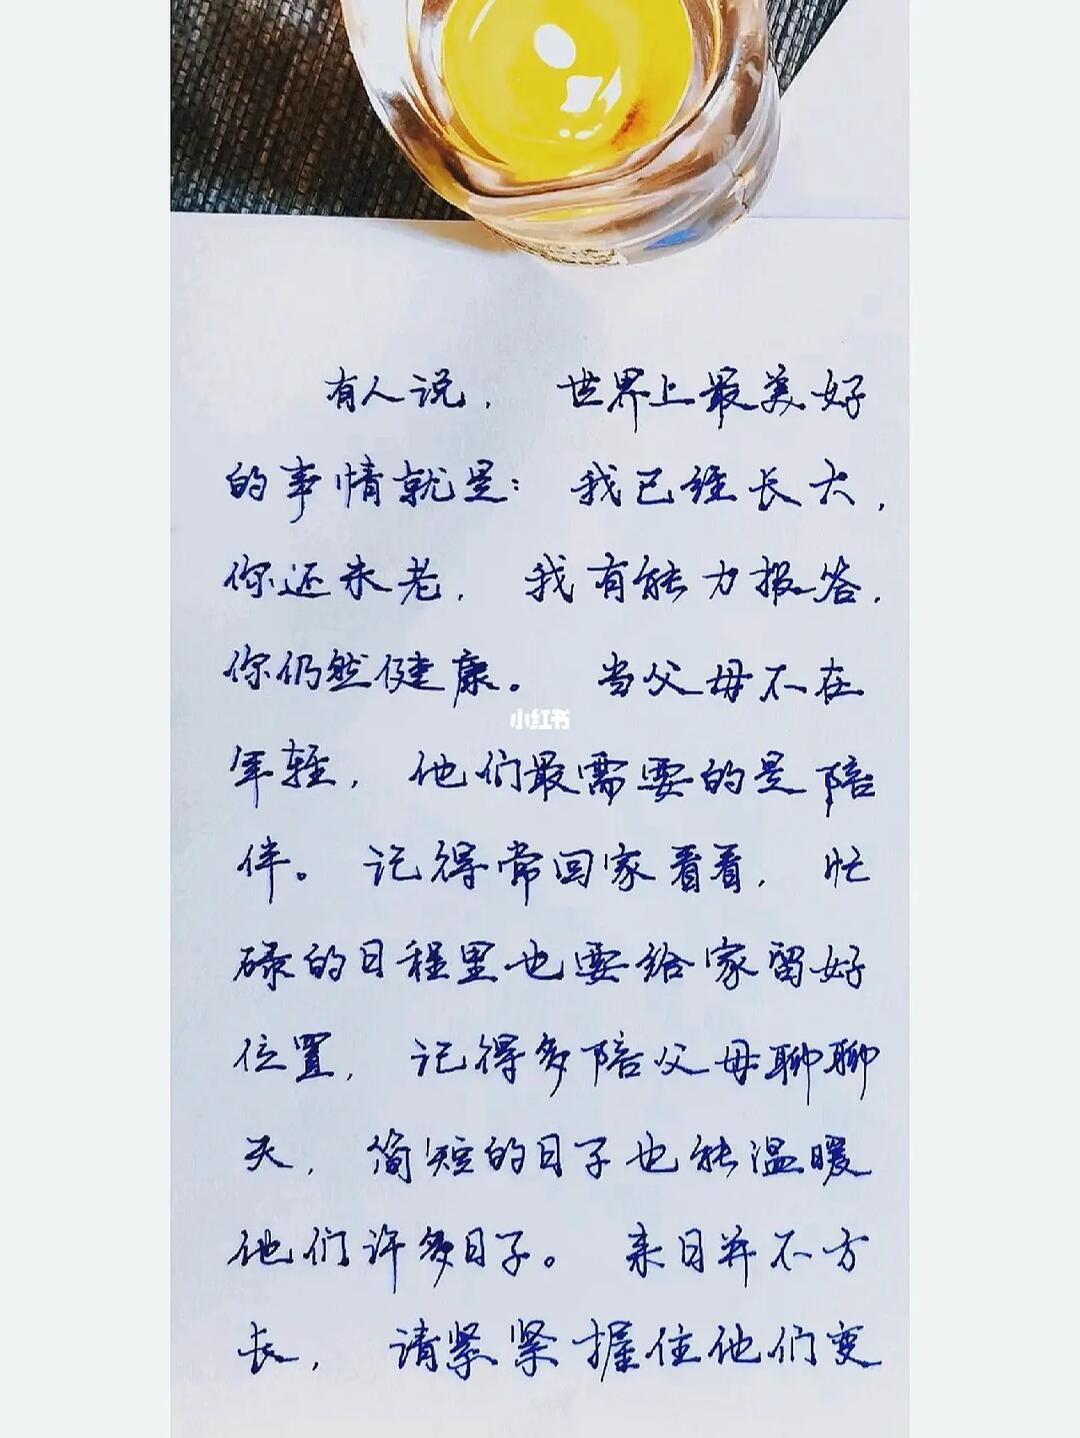 有人说，世界上最美好
的事情就是：我已经长大，
你还未老，我有能力报答，
你仍然健康。当父母不在
年轻，他们最需要的是陪
伴。记得常回家看看，忙
碌的日程里也要给家留好
位置，记得多陪父母聊聊
天，简短的日子也能温暖
他们许多日子。来日并不方
长，请紧紧握住他们变
小红书